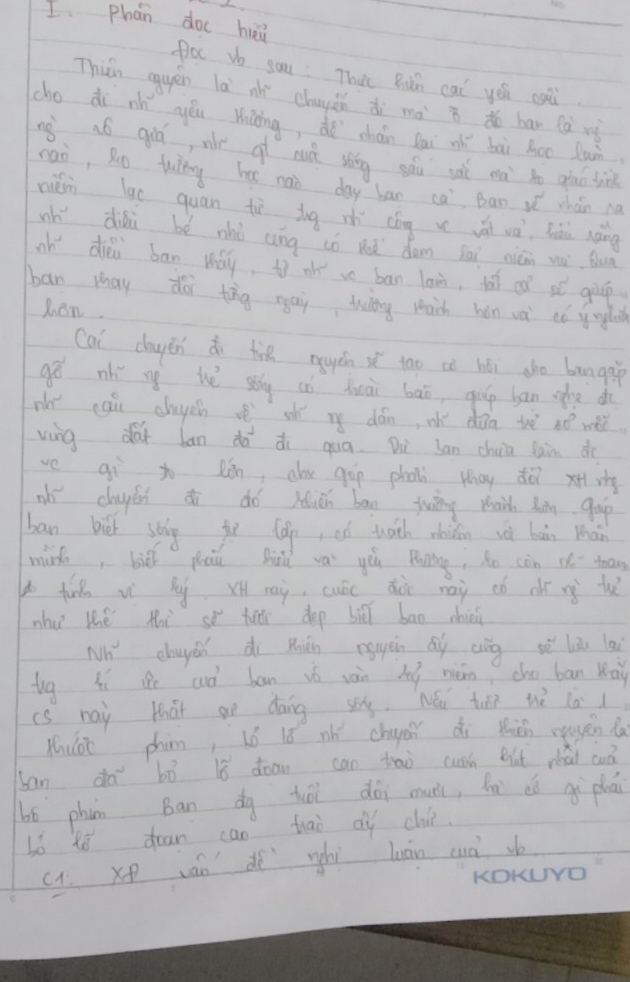 I. Phần đọc hiểu
Đọc vb sau: Thực hiện các yêu cầu.
Thiện nguyện là nh~ chuyến đi mà ở đó bạn là ng
cho đi nh~ yêu thương, để nhận lại nh~ bài học làm
ng vô giá, nh~ gì cuộc sống sâu sắc mà ko giáo trình
nào, ko trường học nào dạy bạn cả. Bạn sẽ nhận ra
niềm lạc quan từ tng nh~ công vc vất vả, hiểu rằng
nh~ điều bé nhỏ cũng có thể đem lại niềm vui. Qua
nh~ điều bạn thấy, từ nh~ vc bạn làm, tất cả sẽ giúp
bạn thay đổi từng ngày, trưởng thành hơn và có ý nghĩa
hơn.
Các chuyến đi tình nguyện sẽ tạo cơ hội cho bạn gặp
gỡ nh~ ng trẻ sống có hoài bão, giúp bạn nghe đc
nh~ câu chuyện về nh~ ng dân, nh~ đứa trẻ ở mỗi
vùng đất bạn đã đi qua. Dù bạn chưa làm đc
vc gì to lớn, góp phần thay đổi XH nhg
nh~ chuyến đi đó khiến bạn trưởng thành hơn, giúp
bạn biết sống tự lập, có trách nhiệm với bản thân
mình, biết thấu hiểu và yêu thương, ko còn nh~ toan
tính vị kỷ. XH này, cuộc đời này có nh~ ng trẻ
như thế thì sẽ tươi đẹp biết bao nhiêu.
Nh~ chuyến đi thiện nguyện ấy cũng sẽ lưu lại
tng kí ức của bạn vô vàn kỷ niệm, cho bạn thấy
cs này thật đáng sống. Nếu tuổi trẻ là 1
thước phim, bỏ lỡ nh~ chuyến đi thiện nguyện là
bạn đã bỏ lỡ đoạn cao trào cuốn hút nhất của
bộ phim. Bạn đg tuổi đôi mươi, hà cớ gì phải
bỏ lỡ đoạn cao trào ấy chứ.
C1: XĐ vấn đề nghị luận của vb
KOKUYO